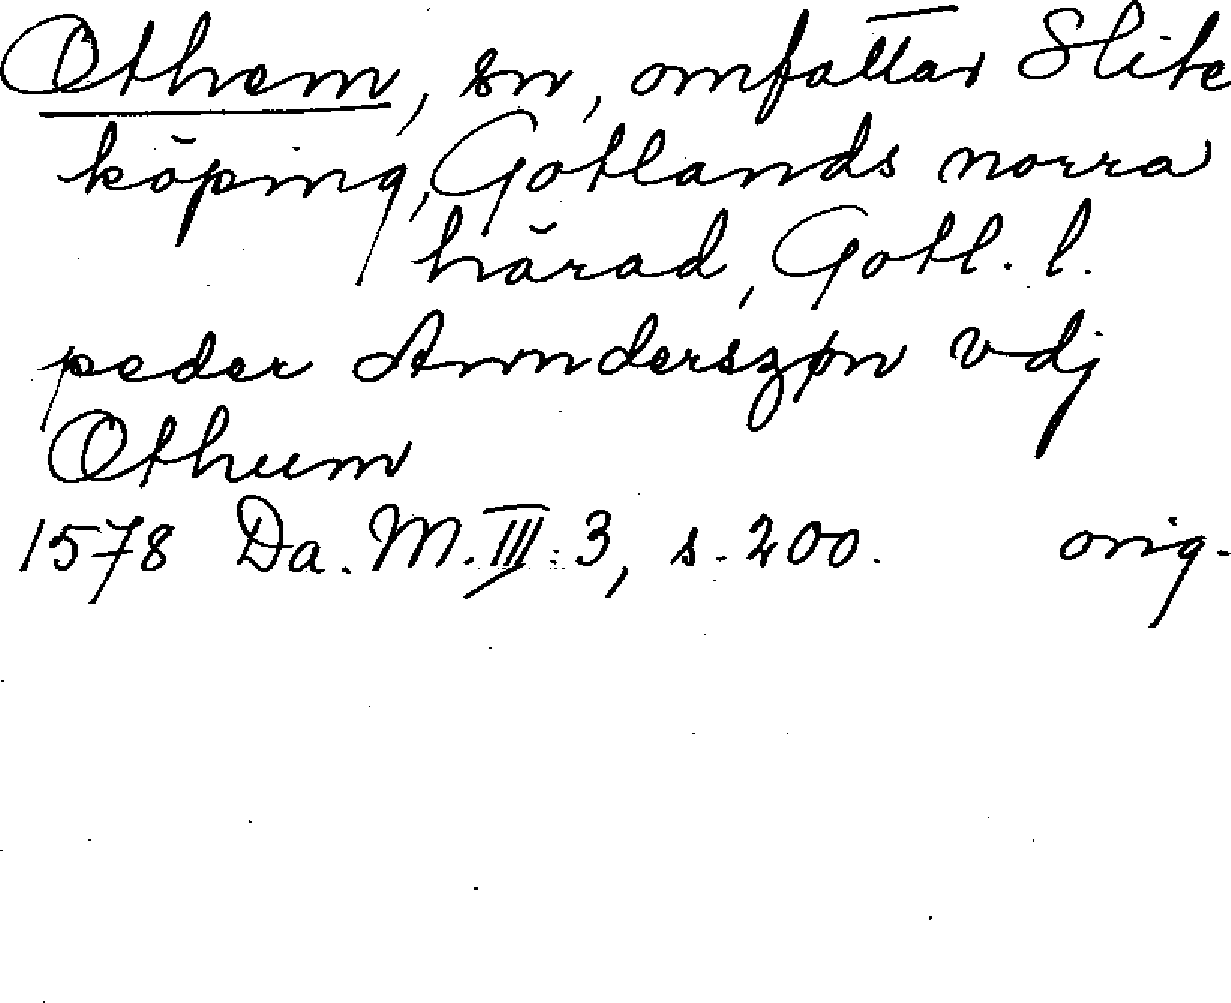 Othem, sn, omfattar Slite
köping, Gotlands norra
härad, Gotl. l.
peder Annderszøn vdj
Othum
1578 Da. M. III: 3, s. 200. orig.